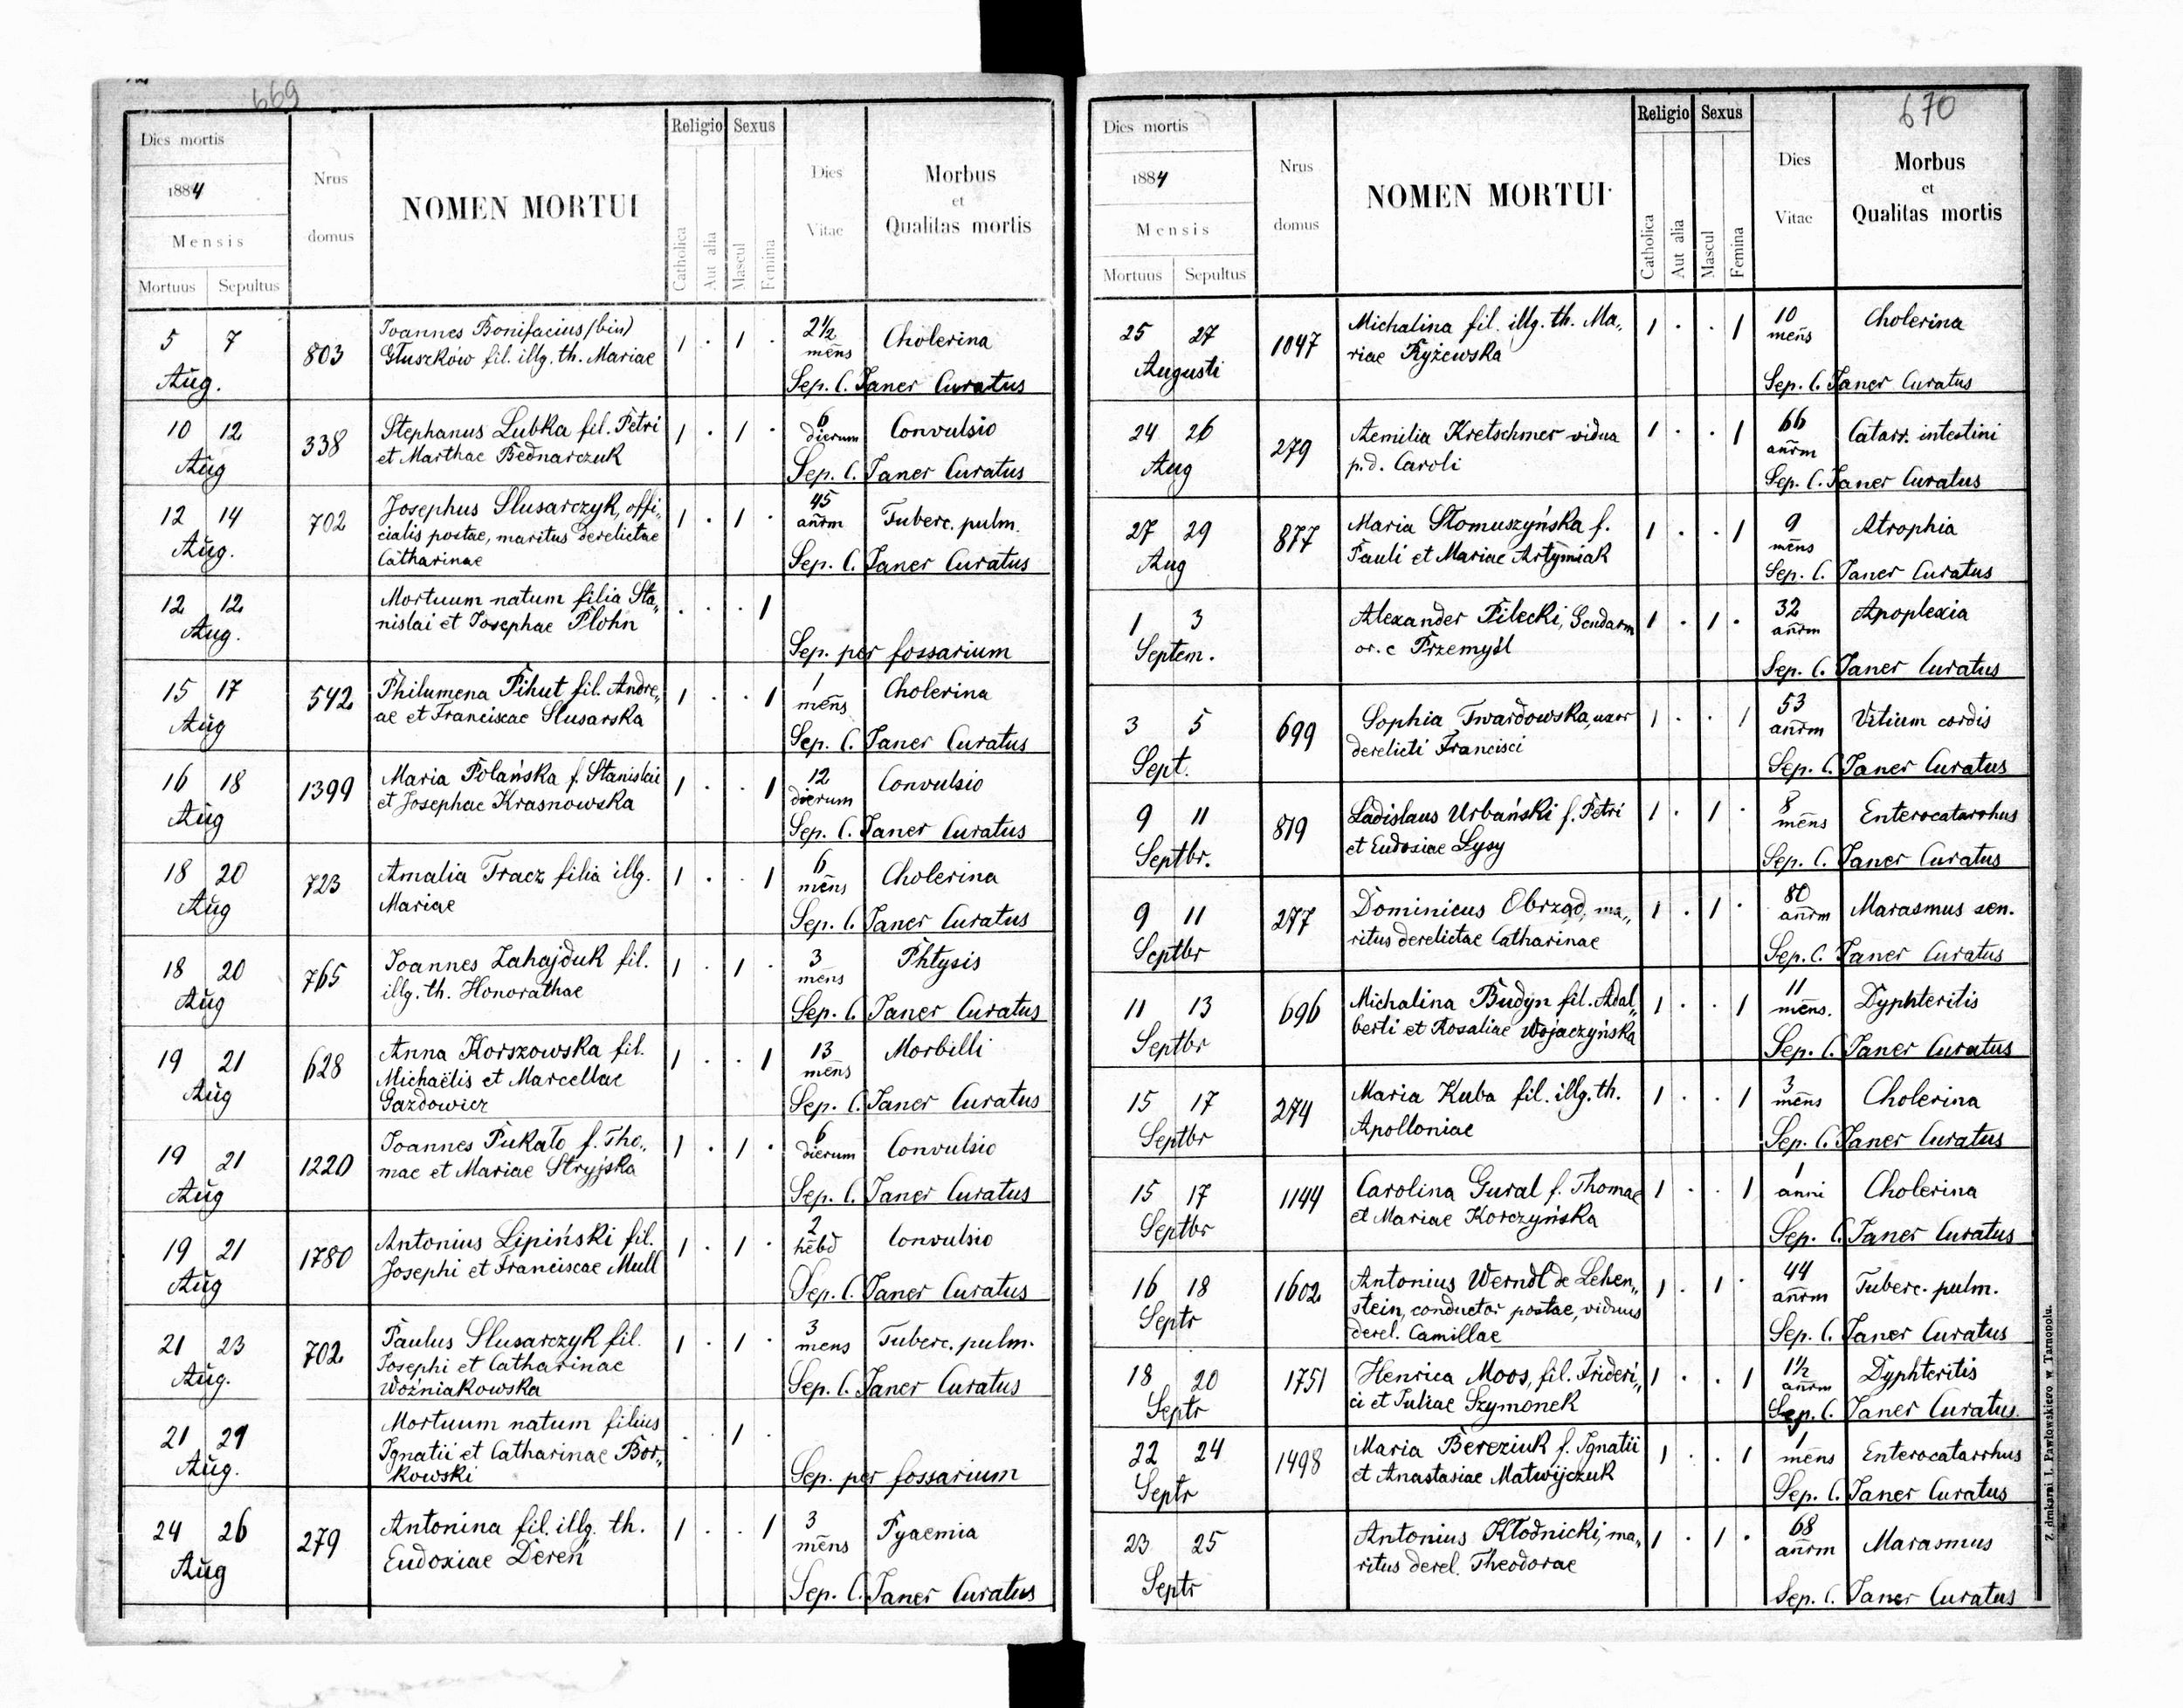 669
Dies mortis
1884
Mensis
Mortuus Sepultus
Nrus domus
NOMEN MORTUI
Religio
Catholica
Aut alia
Sexus
Mascul
Femina
Dies Vitae
Morbus
et
Qualitas mortis
5 7 803 Joannes Bonifacius (bin) 1 . 1 . 2½ mens Cholerina
Aug. Głuszków fil. illg. th. Mariae
Sep. C. Janer Curatus
10 12 338 Stephanus Lubka fil. Petri 1 . 1 . 6 dierum Convulsio
Aug et Marthae Bednarczuk
Sep. C. Janer Curatus
12 14 702 Josephus Slusarczyk, offi„ 1 . 1 . 45 añrm Tuberc. pulm.
Aug. cialis postae, maritus derelictae
Catharinae
Sep. C. Janer Curatus
12 12 Mortuum natum filia Sta„ . . . 1
Aug. nislai et Josephae Plohn
Sep. per fossarium
15 17 542 Philumena Pihut fil. Andre„ 1 . . 1 1 mens Cholerina
Aug ae et Franciscae Slusarska
Sep. C. Janer Curatus
16 18 1399 Maria Polańska f. Stanislai 1 . . 1 12 dierum Convulsio
Aug et Josephae Krasnowska
Sep. C. Janer Curatus
18 20 723 Amalia Tracz filia illg. 1 . . 1 6 mens Cholerina
Aug Mariae
Sep. C. Janer Curatus
18 20 765 Joannes Zahajduk fil. 1 . 1 . 3 mens Phtysis
Aug illg. th. Honorathae
Sep. C. Janer Curatus
19 21 628 Anna Korszowska fil. 1 . . 1 13 mens Morbilli
Aug Michaëlis et Marcellae
Gazdowicz
Sep. C. Janer Curatus
19 21 1220 Joannes Pukało f. Tho„ 1 . 1 . 6 dierum Convulsio
Aug mae et Mariae Stryjska
Sep. C. Janer Curatus
19 21 1780 Antonius Lipiński fil. 1 . 1 . 2 hebd Convulsio
Aug Josephi et Franciscae Mull
Sep. C. Janer Curatus
21 23 702 Paulus Slusarczyk fil. 1 . 1 . 3 mens Tuberc. pulm.
Aug. Josephi et Catharinae
Woźniakowska
Sep. C. Janer Curatus
21 21 Mortuum natum filius . . 1 .
Aug. Ignatii et Catharinae Bor„
kowski
Sep. per fossarium
24 26 279 Antonina fil. illg. th. 1 . . 1 3 mens Pyaemia
Aug Eudoxiae Dereń
Sep. C. Janer Curatus
670
Dies mortis
1884
Mensis
Mortuus Sepultus
Nrus domus
NOMEN MORTUI
Religio
Catholica
Aut alia
Sexus
Mascul
Femina
Dies Vitae
Morbus
et
Qualitas mortis
25 27 1047 Michalina fil. illg. th. Ma„ 1 . . 1 10 mens Cholerina
Augusti riae Ryżewska
Sep. C. Janer Curatus
24 26 279 Aemilia Kretschmer vidua 1 . . 1 66 añrm Catarr. intestini
Aug p.d. Caroli
Sep. C. Janer Curatus
27 29 877 Maria Słomuszyńska f. 1 . . 1 9 mens Atrophia
Aug Pauli et Mariae Artymiak
Sep. C. Janer Curatus
1 3 Alexander Pilecki, Gendarm 1 . 1 . 32 añrm Apoplexia
Septem. or. e Przemyśl
Sep. C. Janer Curatus
3 5 699 Sophia Twardowska, uxor 1 . . 1 53 añrm Vitium cordis
Sept. derelicti Francisci
Sep. C. Janer Curatus
9 11 819 Ladislaus Urbański f. Petri 1 . 1 . 8 mens Enterocatarrhus
Septbr. et Eudoxiae Lysy
Sep. C. Janer Curatus
9 11 277 Dominicus Obrząd, ma„ 1 . 1 . 80 añrm Marasmus sen.
Septbr ritus derelictae Catharinae
Sep. C. Janer Curatus
11 13 696 Michalina Budyn fil. Adal„ 1 . . 1 11 mens. Dyphteritis
Septbr berti et Rosaliae Wojaczyńska
Sep. C. Janer Curatus
15 17 274 Maria Kuba fil. illg. th. 1 . . 1 3 mens Cholerina
Septbr Apolloniae
Sep. C. Janer Curatus
15 17 1144 Carolina Gural f. Thomae 1 . . 1 1 anni Cholerina
Septbr et Mariae Korczyńska
Sep. C. Janer Curatus
16 18 1602 Antonius Werndl de Lehen„ 1 . 1 . 44 añrm Tuberc. pulm.
Septr stein, conductor postae, viduus
derel. Camillae
Sep. C. Janer Curatus
18 20 1751 Henrica Moos, fil. Frideri„ 1 . . 1 1½ añrm Dyphteritis
Septr ci et Juliae Szymonek
Sep. C. Janer Curatus.
22 24 1498 Maria Bereziuk f. Ignatii 1 . . 1 1 mens Enterocatarrhus
Septr et Anastasiae Matwijczuk
Sep. C. Janer Curatus
23 25 Antonius Kłodnicki, ma„ 1 . 1 . 68 añrm Marasmus
Septr ritus derel. Theodorae
Sep. C. Janer Curatus
Z drukarni J. Pawłowskiego w Tarnopolu.